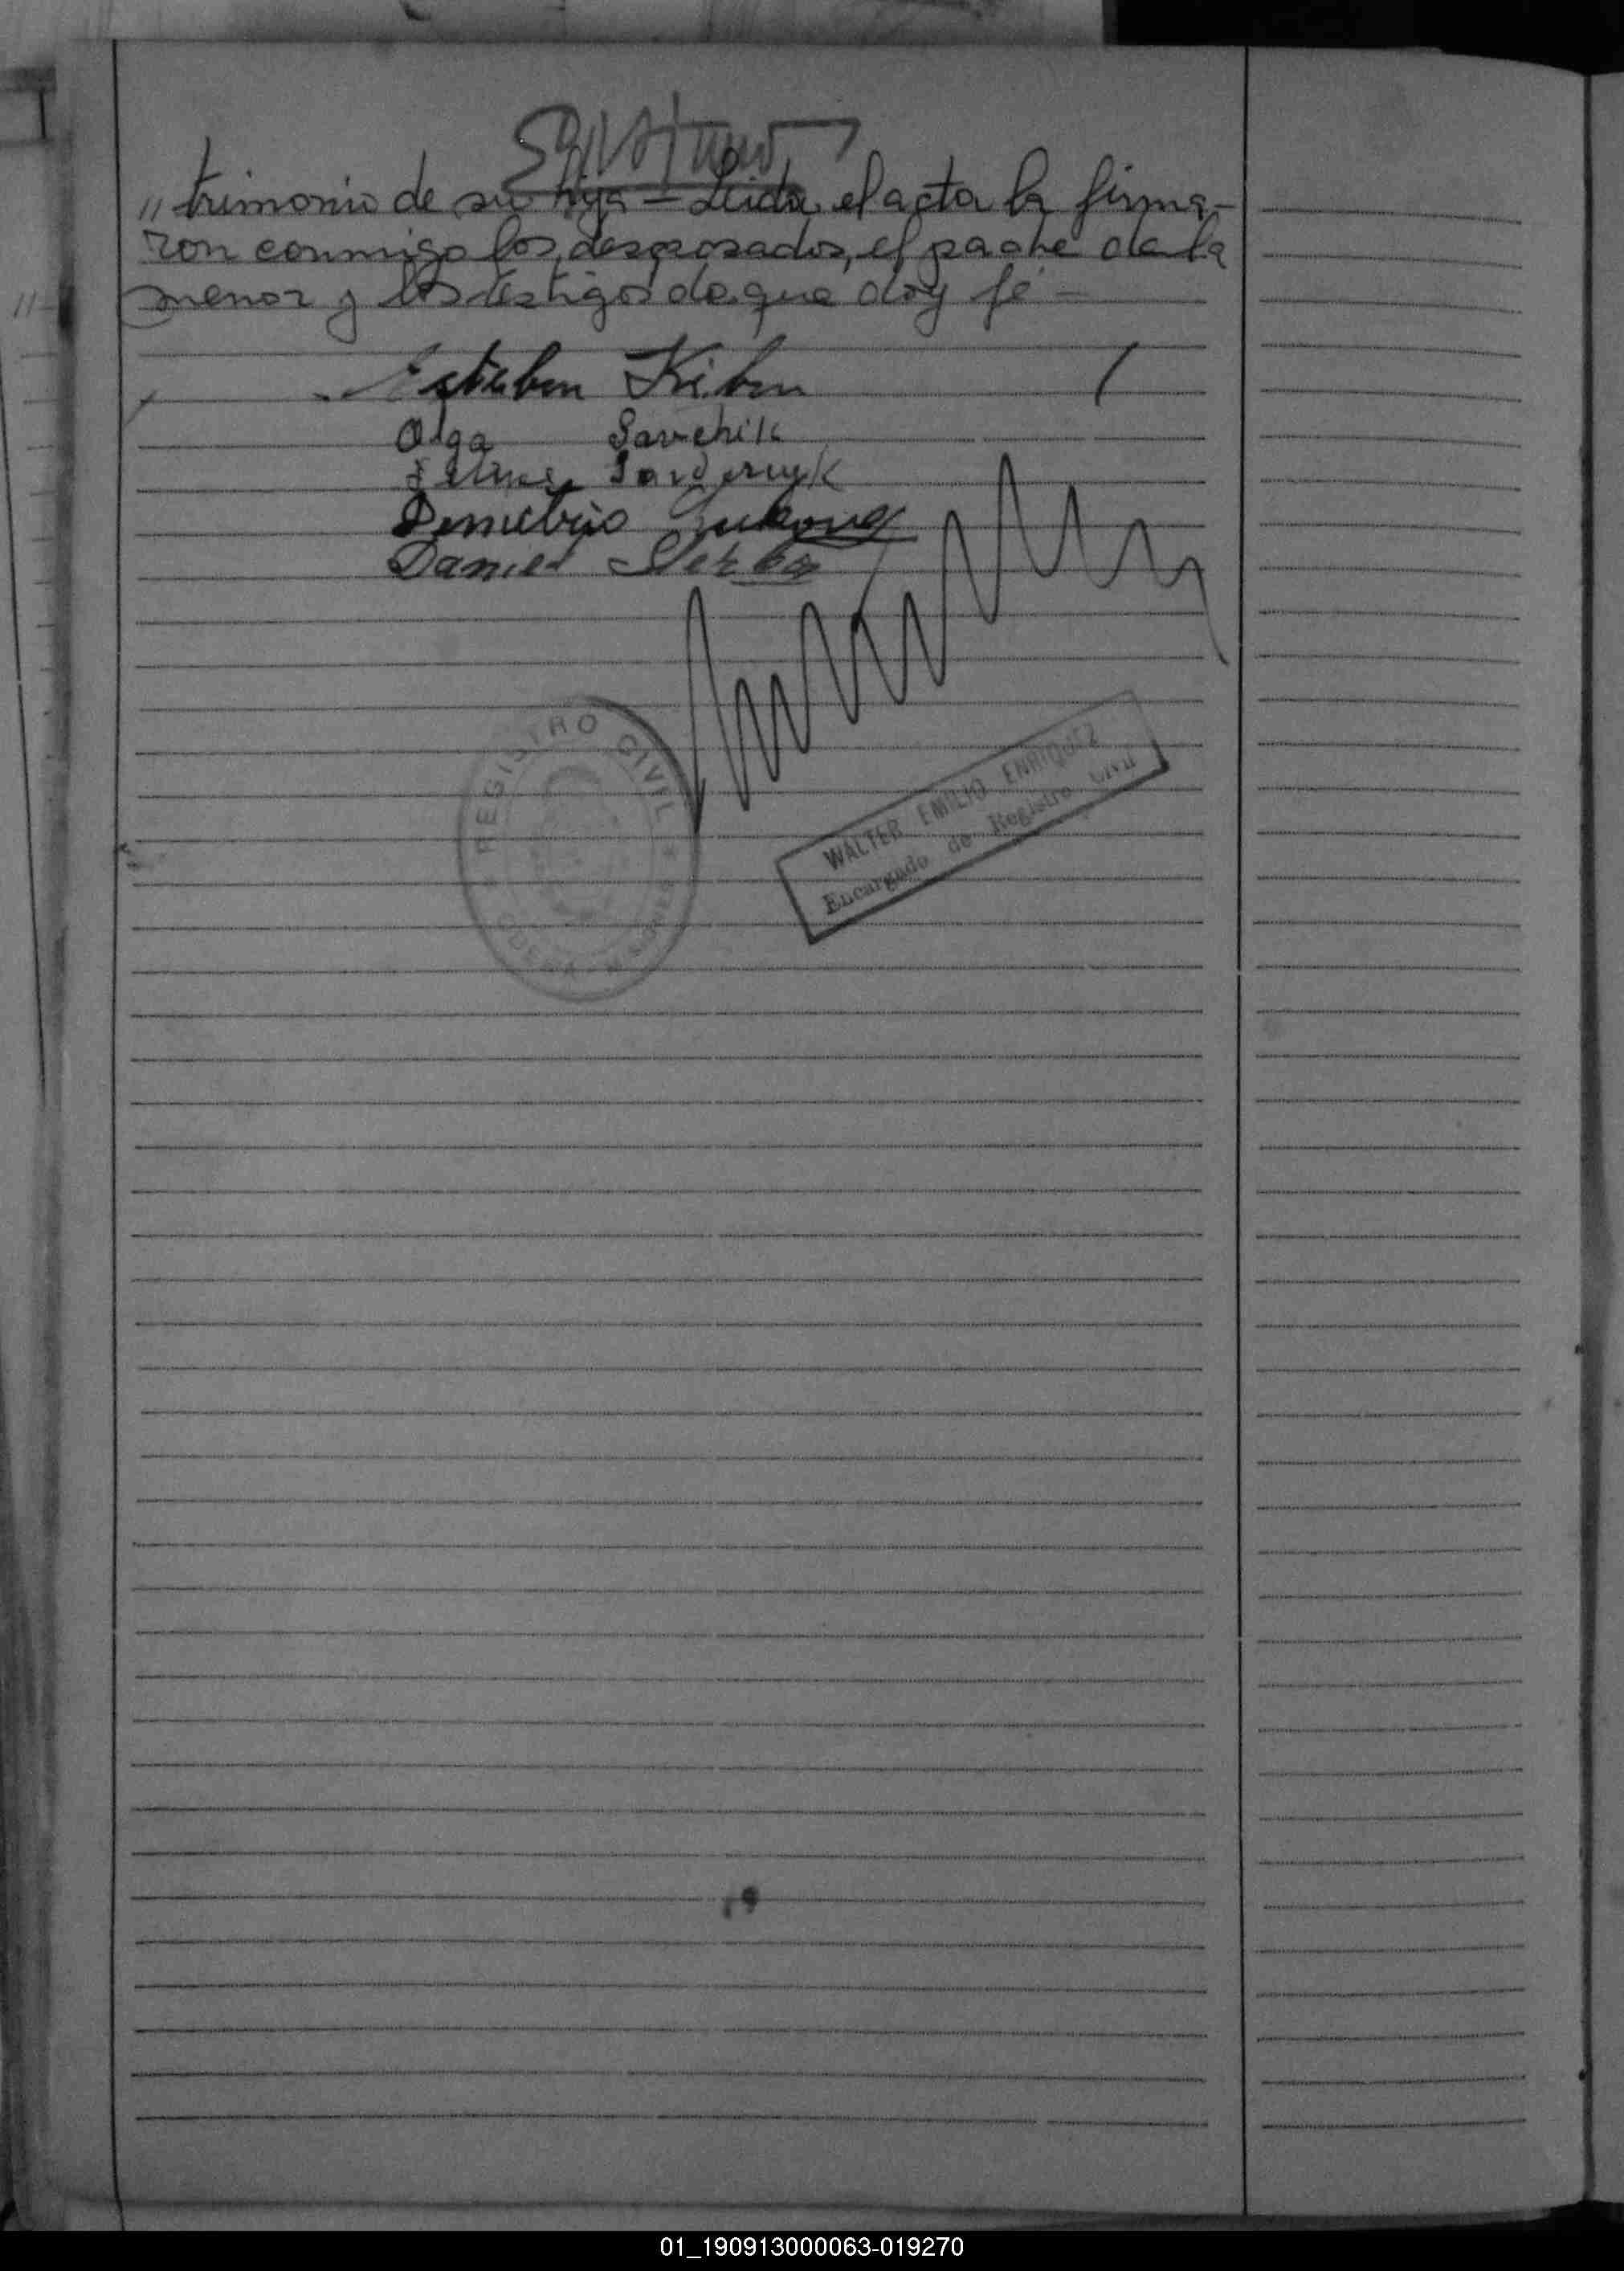 „ trimonio de su hija – Leida el acta la firma-
ron conmigo los desposados, el padre de la
menor y los testigos de que doy fé –
Esteban
Olga Savchik
Demetrio
Daniel
REGISTRO CIVIL
WALTER EMILIO ENRIQUEZ
Encargado de Registro Civil
01_190913000063-019270